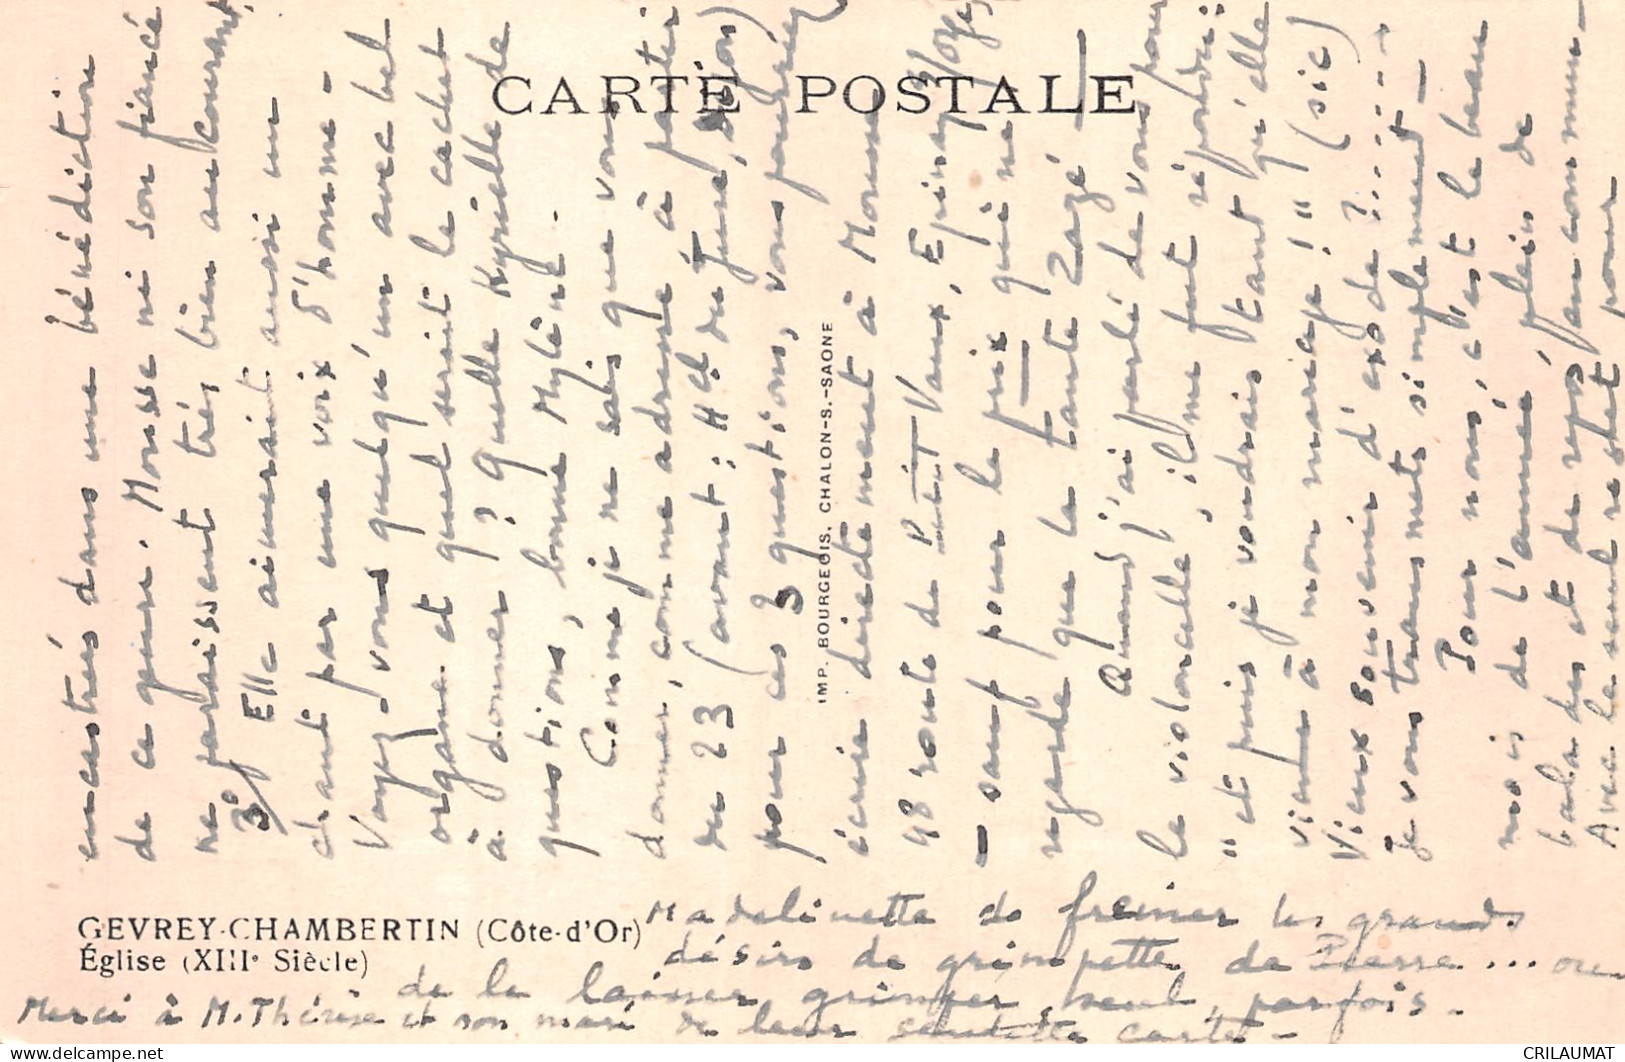 CARTE POSTALE
encastrés dans une bénédiction
de ce genre. Mousse ni son fiancé
ne paraissent très bien au courant
3° Elle aimerait aussi un
chant par une voix d'homme -
Voyez-vous quelqu'un avec bel
organe et quel serait le cachet
à donner ? Quelle Kyrielle de
questions, bonne Mylène -
Comme je ne sais que vous
donner, comme adresse à partir
du 23 (avant : Hel du Jura, Dijon)
pour ces 3 questions, vous pourriez
écrire directement à Mousse
98 route de Vaux, Epinay s/Orge
- sauf pour le prix qui ne
regarde que la tante Zazé -
Quand j'ai parlé de vous pour
le violoncelle, il me fut répondu :
" et puis je voudrais tant qu'elle
vienne à mon mariage ! " (sic)
Vieux souvenir d'exode ? ......
je vous transmets simplement -
Pour nous, c'est le beau
mois de l'année, plein de
balades et de repos en commun -
Avec le seul regret pour
IMP. BOURGEOIS, CHALON-S.-SAONE
GEVREY-CHAMBERTIN (Côte-d'Or)
Église (XIIIe Siècle)
Madelinette de freiner les grands
désirs de grimpette de Pierre ... ou
de le laisser grimper seul, parfois -
Merci à M. Thérèse et son mari de leur carte -
CRILAUMAT